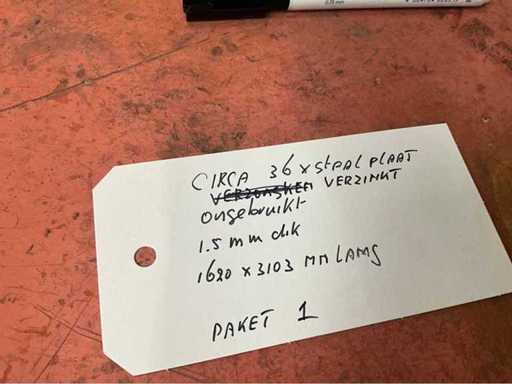 CIRCA 36 x STAALPLAAT
VERZINKT
ongebruikt
1.5 mm dik
1620 x 3103 MM LANG
PAKET 1